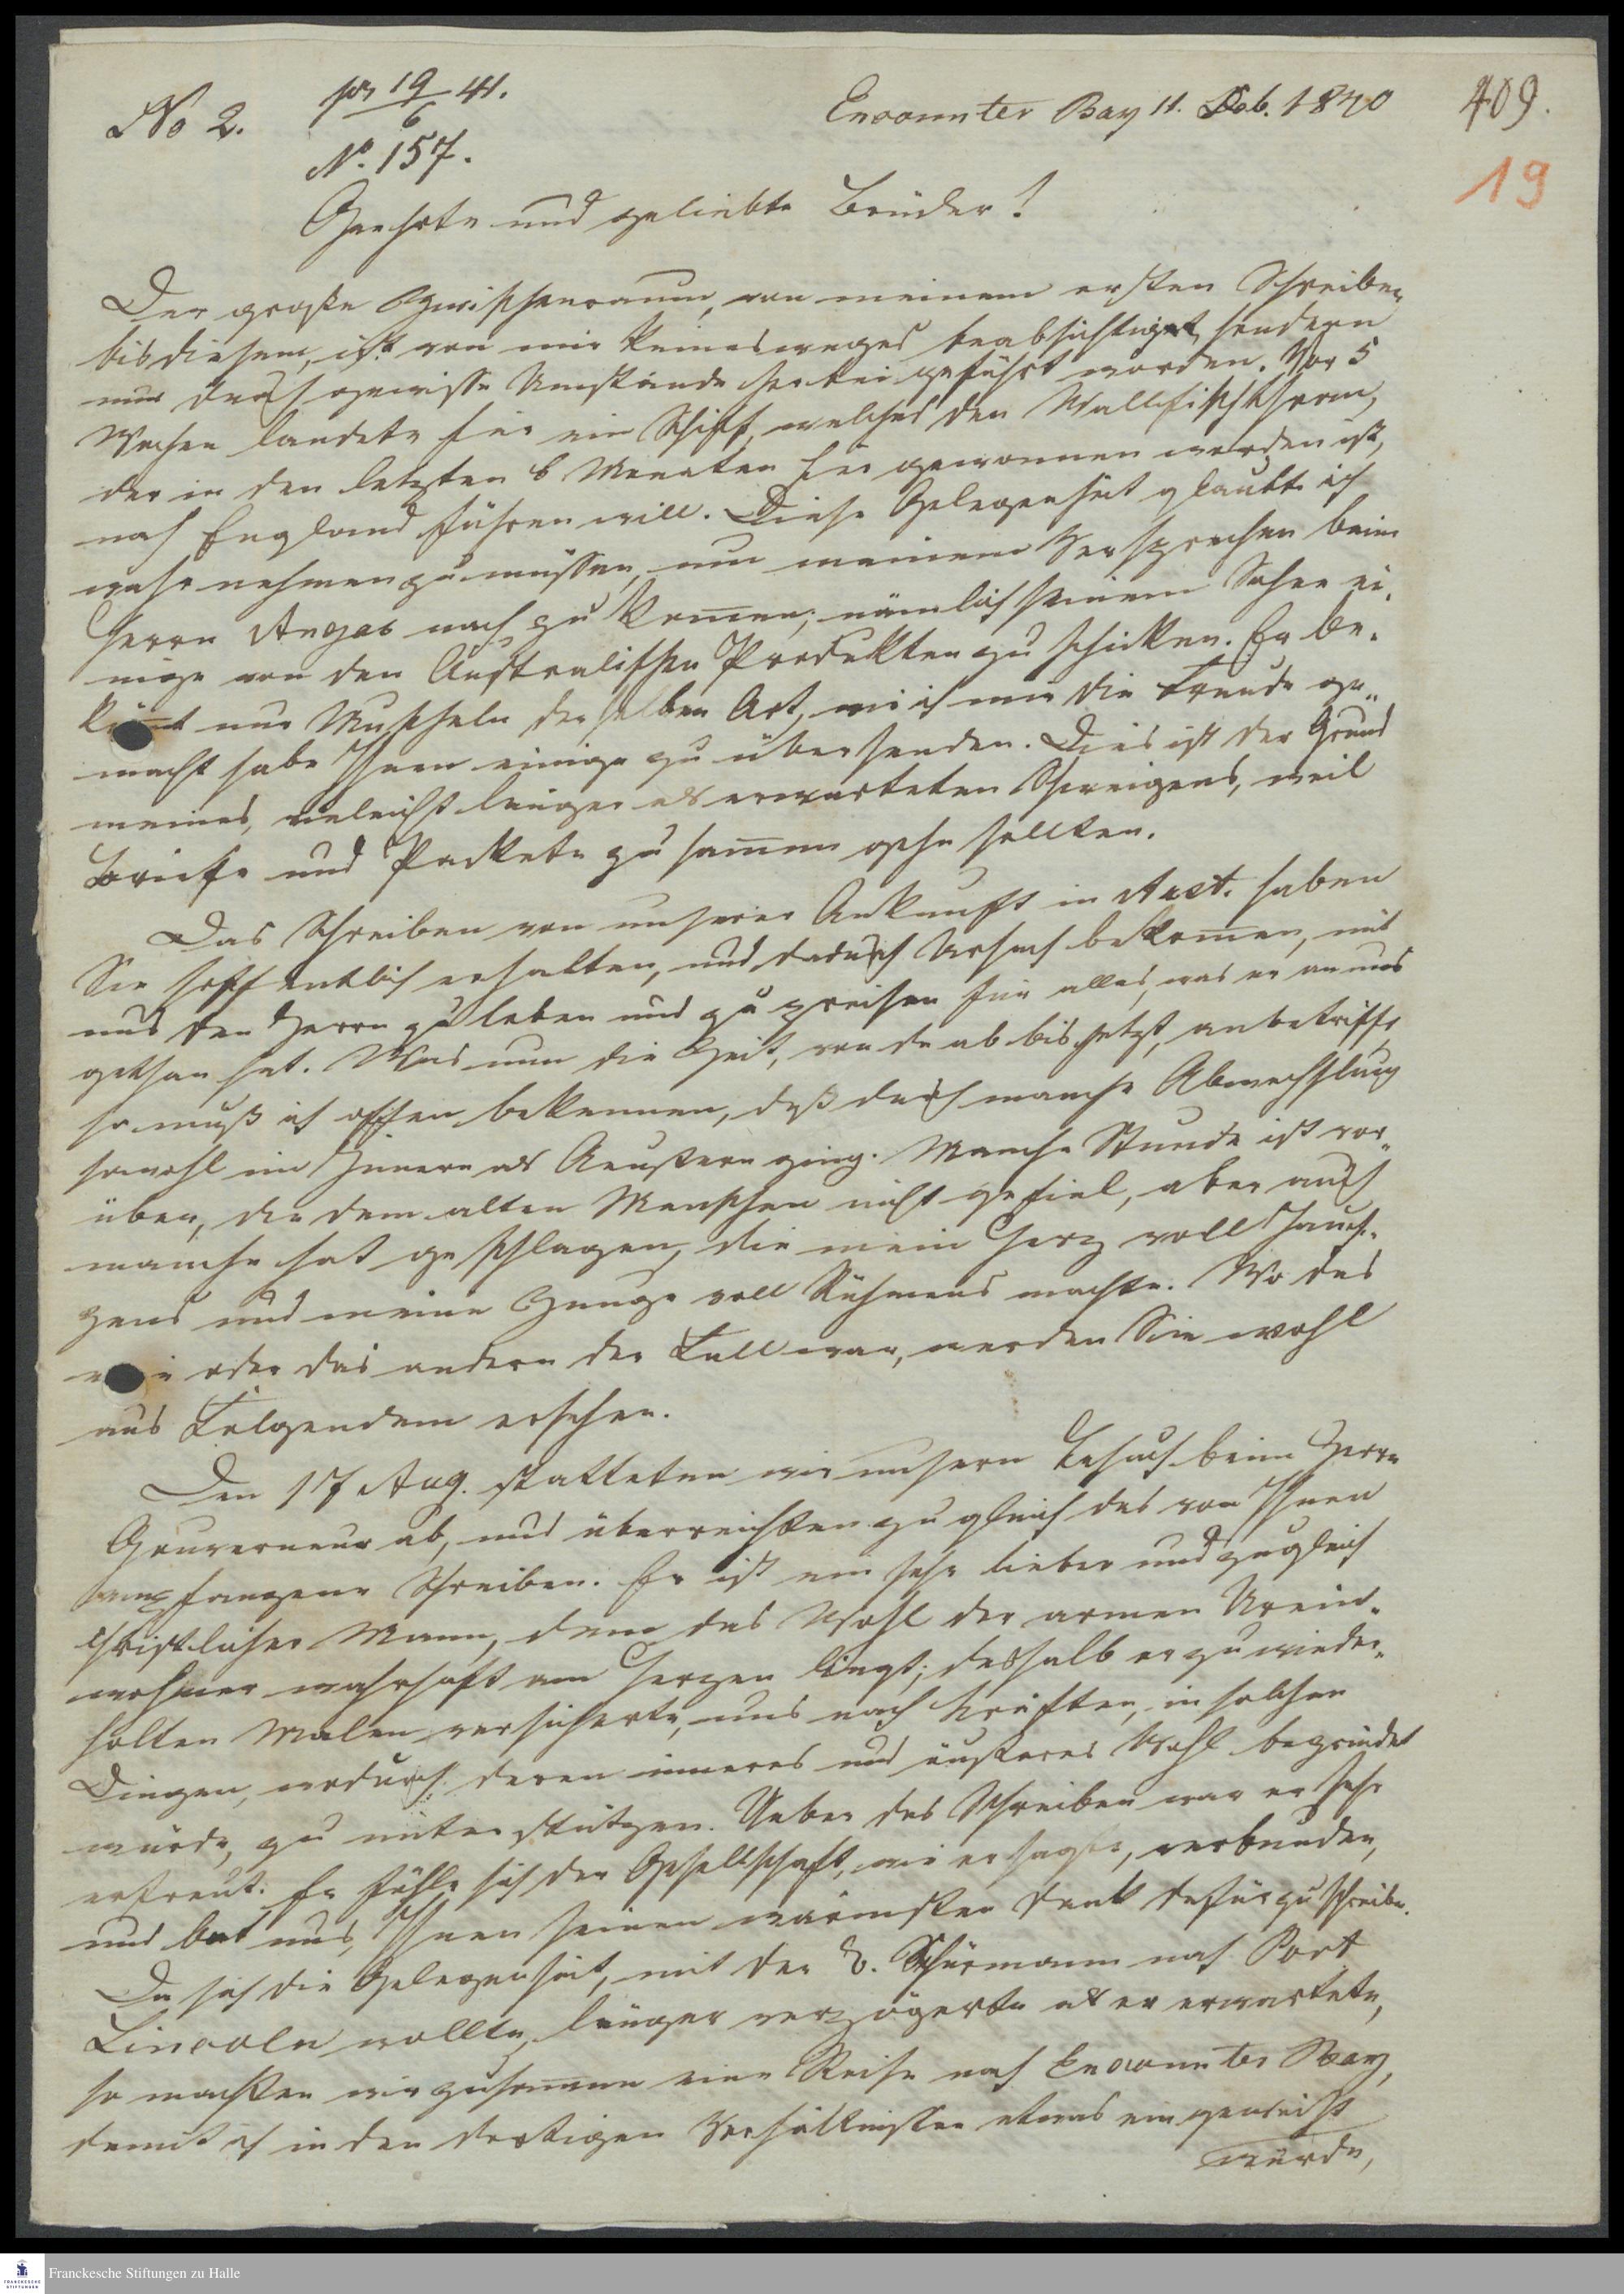 No 2.
pr 19/6 41.
No. 157.
Encounter Bay 11. Feb. 1840
409.
19
Geehrte und geliebte Brüder!
Der große Zwischenraum, von meinem ersten Schreiben
bis diesem, ist von mir keinesweges beabsichtiget, sondern
nur durch gewisse Umstände herbei geführt worden. Vor 5
Wochen landete hier ein Schiff, welches den Wallfischthran,
der in den letzten 6 Monaten hier gewonnen worden ist,
nach England führen will. Diese Gelegenheit glaubte ich
wahr nehmen zu müssen, um meinem Versprechen beim
Herrn Angas nach zu kom̅en; nämlich seinem Sohne ei-
nige von den Australischen Produkten zu schicken. Er be-
köm̅t nur Muscheln derselben Art, wie ich mir die Freude ge-
macht habe Ihnen einige zu übersenden. Dies ist der Grund
meines, vieleicht länger als erwarteten Schweigens, weil
Briefe und Packete zusam̅en gehn sollten.
Das Schreiben von unserer Ankunft in Aust. haben
Sie hoffentlich erhalten, und dadurch Ursach bekom̅en, mit
uns den Herrn zu loben und zu preisen für alles, was er an uns
gethan hat. Was nun die Zeit, von da ab bis jetzt, anbetrifft,
so muß ich offen bekennen, daß durch manche Abwechslung
sowohl im Innern als Aeußern ging. Manche Stunde ist vor-
über, die dem alten Menschen nicht gefiel, aber auch
manche hat geschlagen, die mein Herz voll Jauch-
zens und meine Zunge voll Rühmens machte. Wo das
oder das andere der Fall war, werden Sie wohl
aus Folgendem ersehen.
Den 17 Aug. statteten wir unsern Besuch beim Herrn
Gouverneur ab, und überreichten zugleich das von Ihnen
empfangene Schreiben. Er ist ein sehr lieber und zugleich
christlicher Mann, dem das Wohl der armen Urein-
wohner wahrhaft am Herzen liegt; deshalb er zu wieder-
holten Malen versicherte, uns nach Kräften, in solchen
Dingen, wodurch deren inneres und äußeres Wohl begründet
würde, zu unterstützen. Ueber das Schreiben war er sehr
erfreut. Er fühle sich der Gesellschaft, wie er sagte, verbunden,
und bat uns, Ihnen seinen wärmsten Dank dafür zu schreiben.
Da sich die Gelegenheit, mit der B. Schürmann nach Port
Lincoln wollte, länger verzögerte als er erwartete,
so machten wir zusam̅en eine Reise nach Encounter Bay,
damit ich in den dortigen Verhältnissen etwas eingeweiht
würde,
Franckesche Stiftungen zu Halle
FRANCKESCHE STIFTUNGEN